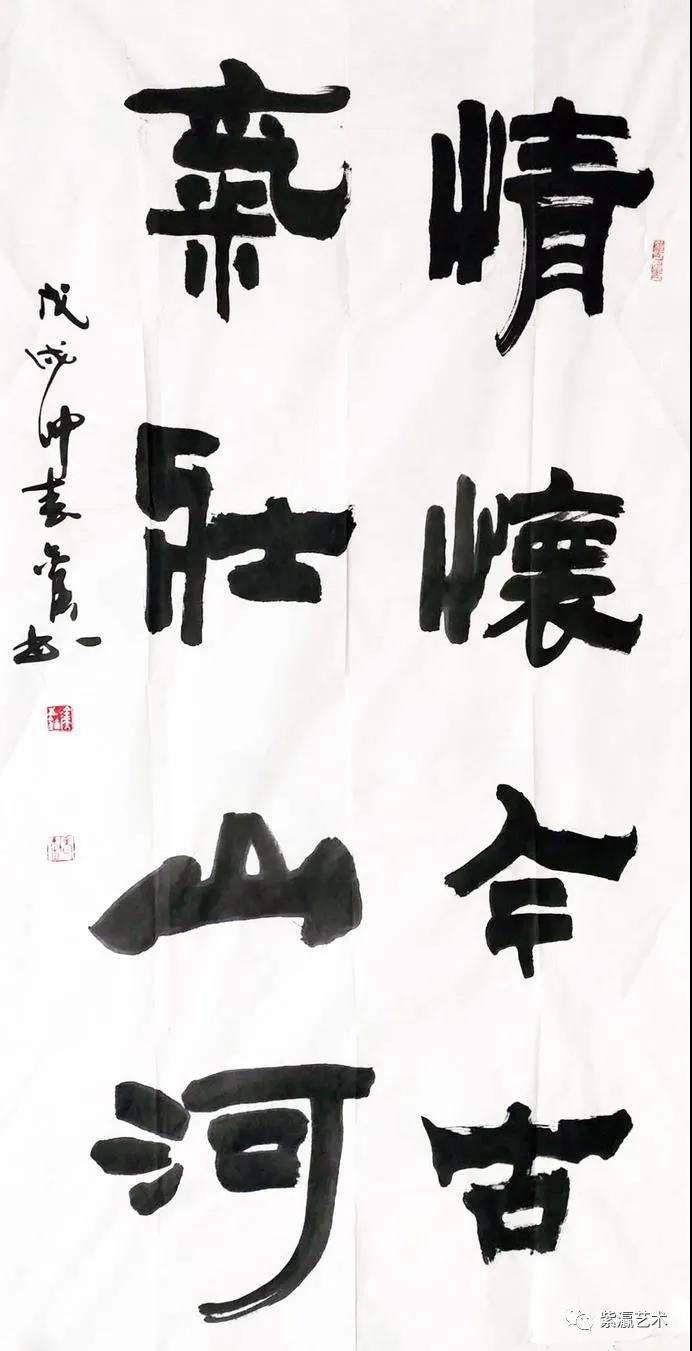 情懷今古
氣壯山河
戊戌仲春
紫瀛艺术